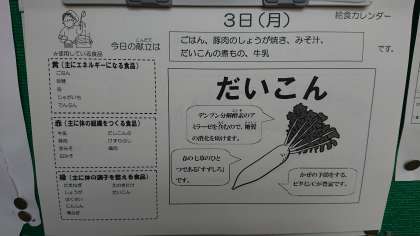 3日(月)
給食カレンダー
今日の献立は
ごはん、豚肉のしょうが焼き、みそ汁、
だいこんの煮もの、牛乳
です。
★使用している食品
黄(主にエネルギーになる食品)
ごはん
砂糖
油
じゃがいも
でんぷん
赤(主に体の組織をつくる食品)
牛乳
豚肉
緑(主に体の調子を整える食品)
たまねぎ
しょうが
はくさい
にんじん
だいこん
だいこん
デンプン分解酵素のア
ミラーゼを含むので、糖質
の消化を助けます。
春の七草のひと
つである「すずしろ」
です。
かぜの予防をする、
ビタミンCが豊富です。